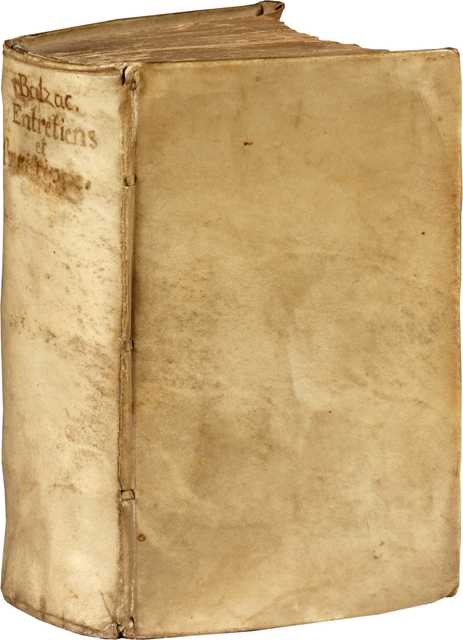 Balzac.
Entretiens
et